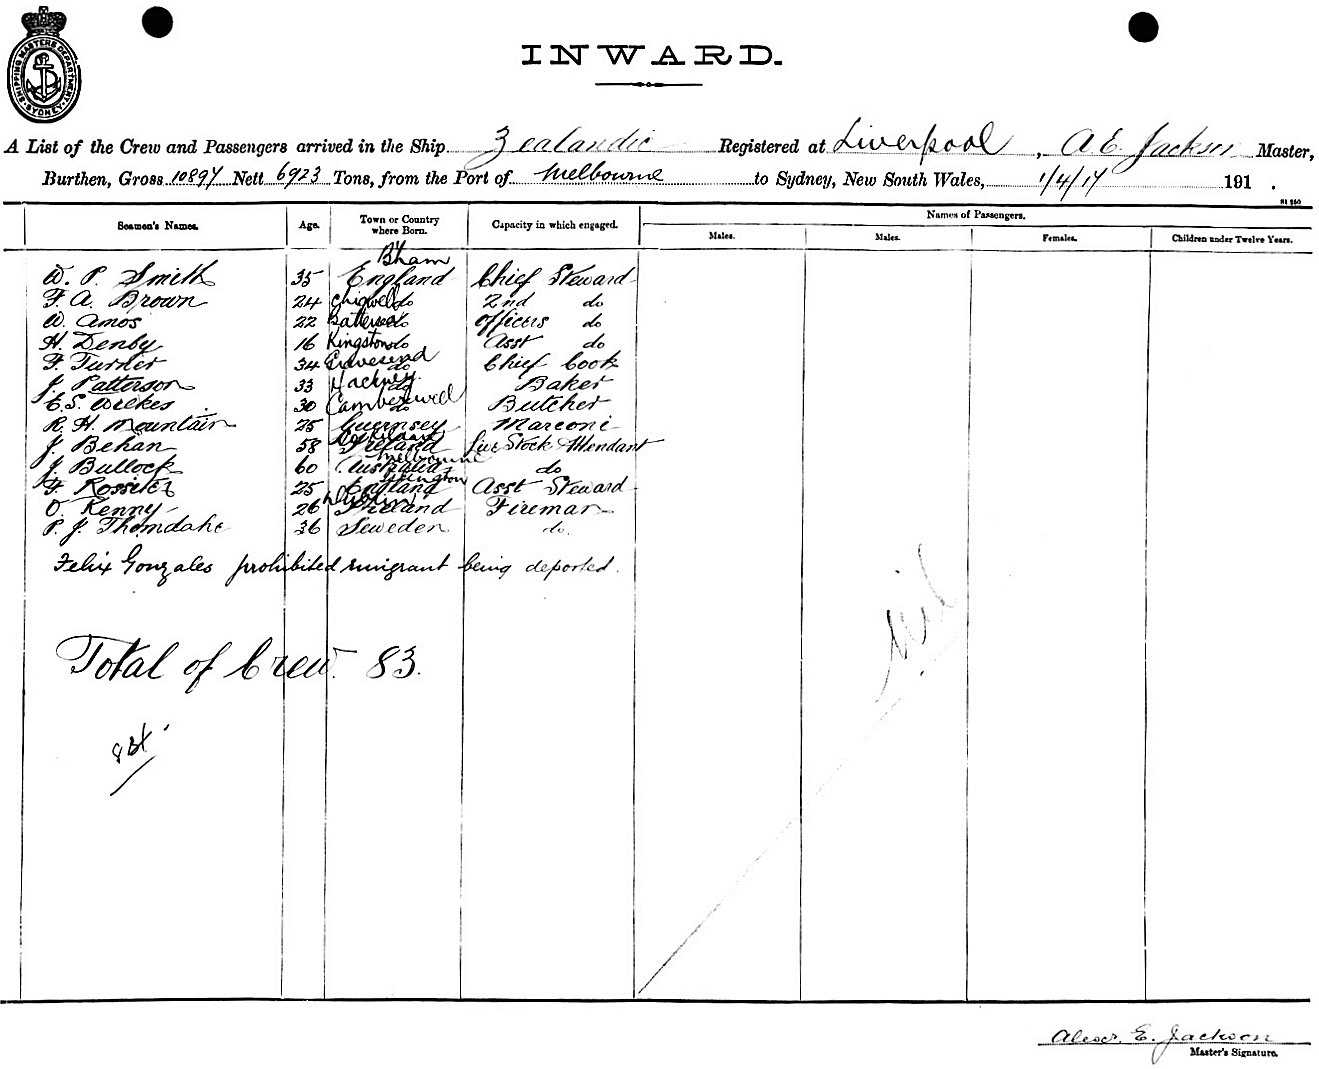 SHIPPING MASTERS DEPARTMENT SYDNEY
INWARD.
A List of the Crew and Passengers arrived in the Ship Zealandic Registered at Liverpool, A. E. Jackson Master,
Burthen, Gross 10897 Nett 6923 Tons, from the Port of Melbourne to Sydney, New South Wales, 1/4/17 191 .
Seamen's Names. Age. Town or Country where Born. Capacity in which engaged. Names of Passengers.
Males. Males. Females. Children under Twelve Years.
W. P. Smith 35 B'ham England Chief Steward
F. A. Brown 24 Chigwell do 2nd do
W. Amos 22 Battersea do Officers do
H. Denby 16 Kingston do Asst do
F. Turner 34 Gravesend do Chief Cook
J. Patterson 33 Hackney do Baker
E. S. Wilkes 30 Camberwell do Butcher
R. H. Mountain 25 Guernsey Marconi
J. Behan 58 Ireland Live Stock Attendant
J. Bullock 60 Melbourne Australia do
F. Rossiter 25 England Asst Steward
O. Kenny 26 Dublin Ireland Fireman
P. J. Thomdahe 36 Seweden do.
Felix Gonzales prohibited emigrant being deported.
Nil
Total of Crew. 83.
Alexr. E. Jackson
Master's Signature.